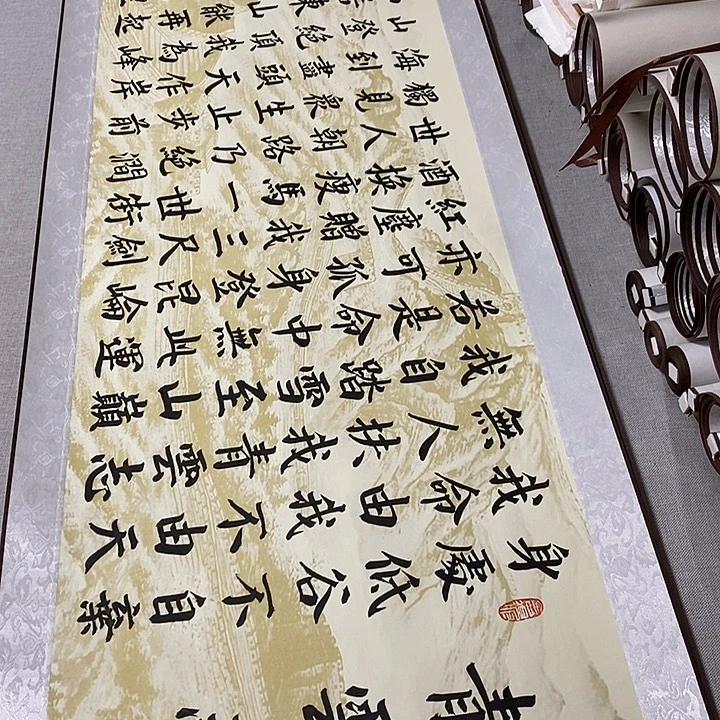 青雲
身處低谷不自棄
我命由我不由天
無人扶我青雲志
我自踏雪至山巔
若是命中無此運
亦可孤身登昆崙
紅塵贈我三尺劍
酒換瘦馬一世
世人朝路乃絕澗
獨見眾生止步前
海到盡頭天作岸
山登絕頂我為峰
東山再起